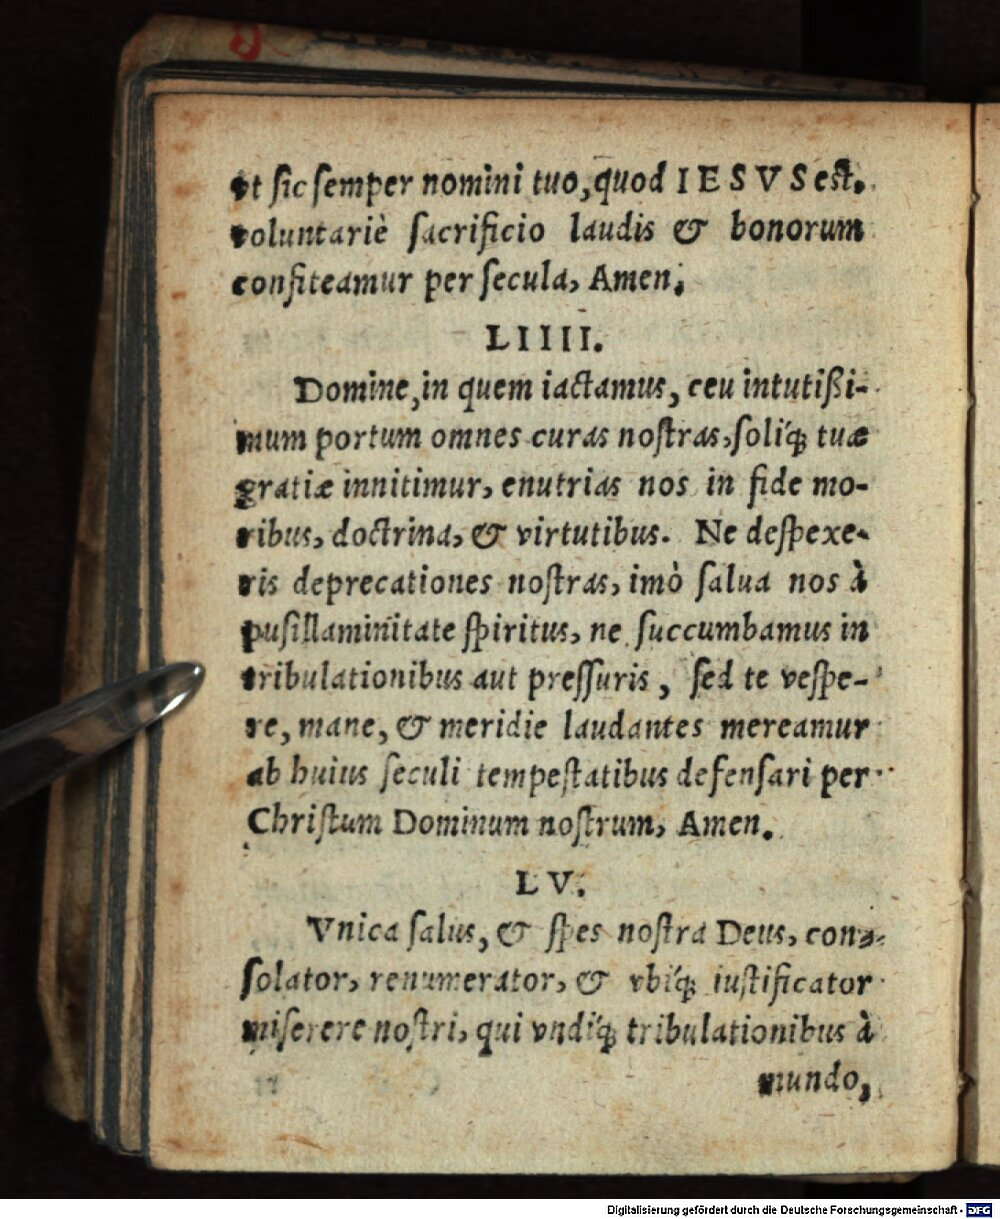 vt ſic ſemper nomini tuo, quod IESVS est.
voluntariè ſacrificio laudis & bonorum
confiteamur per ſecula, Amen.
LIIII.
Domine, in quem iactamus, ceu intutißi-
mum portum omnes curas noſtras, ſoliq́; tuæ
gratiæ innitimur, enutrias nos in fide mo-
ribus, doctrina, & virtutibus. Ne deſpexe-
ris deprecationes noſtras, imò ſalua nos à
puſillaminitate ſpiritus, ne ſuccumbamus in
tribulationibus aut preſſuris, ſed te veſpe-
re, mane, & meridie laudantes mereamur
ab huius ſeculi tempeſtatibus defenſari per
Chriſtum Dominum noſtrum, Amen.
LV.
Vnica ſalus, & ſpes noſtra Deus, con-
ſolator, renumerator, & vbiq́; iuſtificator
miſerere noſtri, qui vndiq́; tribulationibus à
mundo,
Digitalisierung gefördert durch die Deutsche Forschungsgemeinschaft - DFG